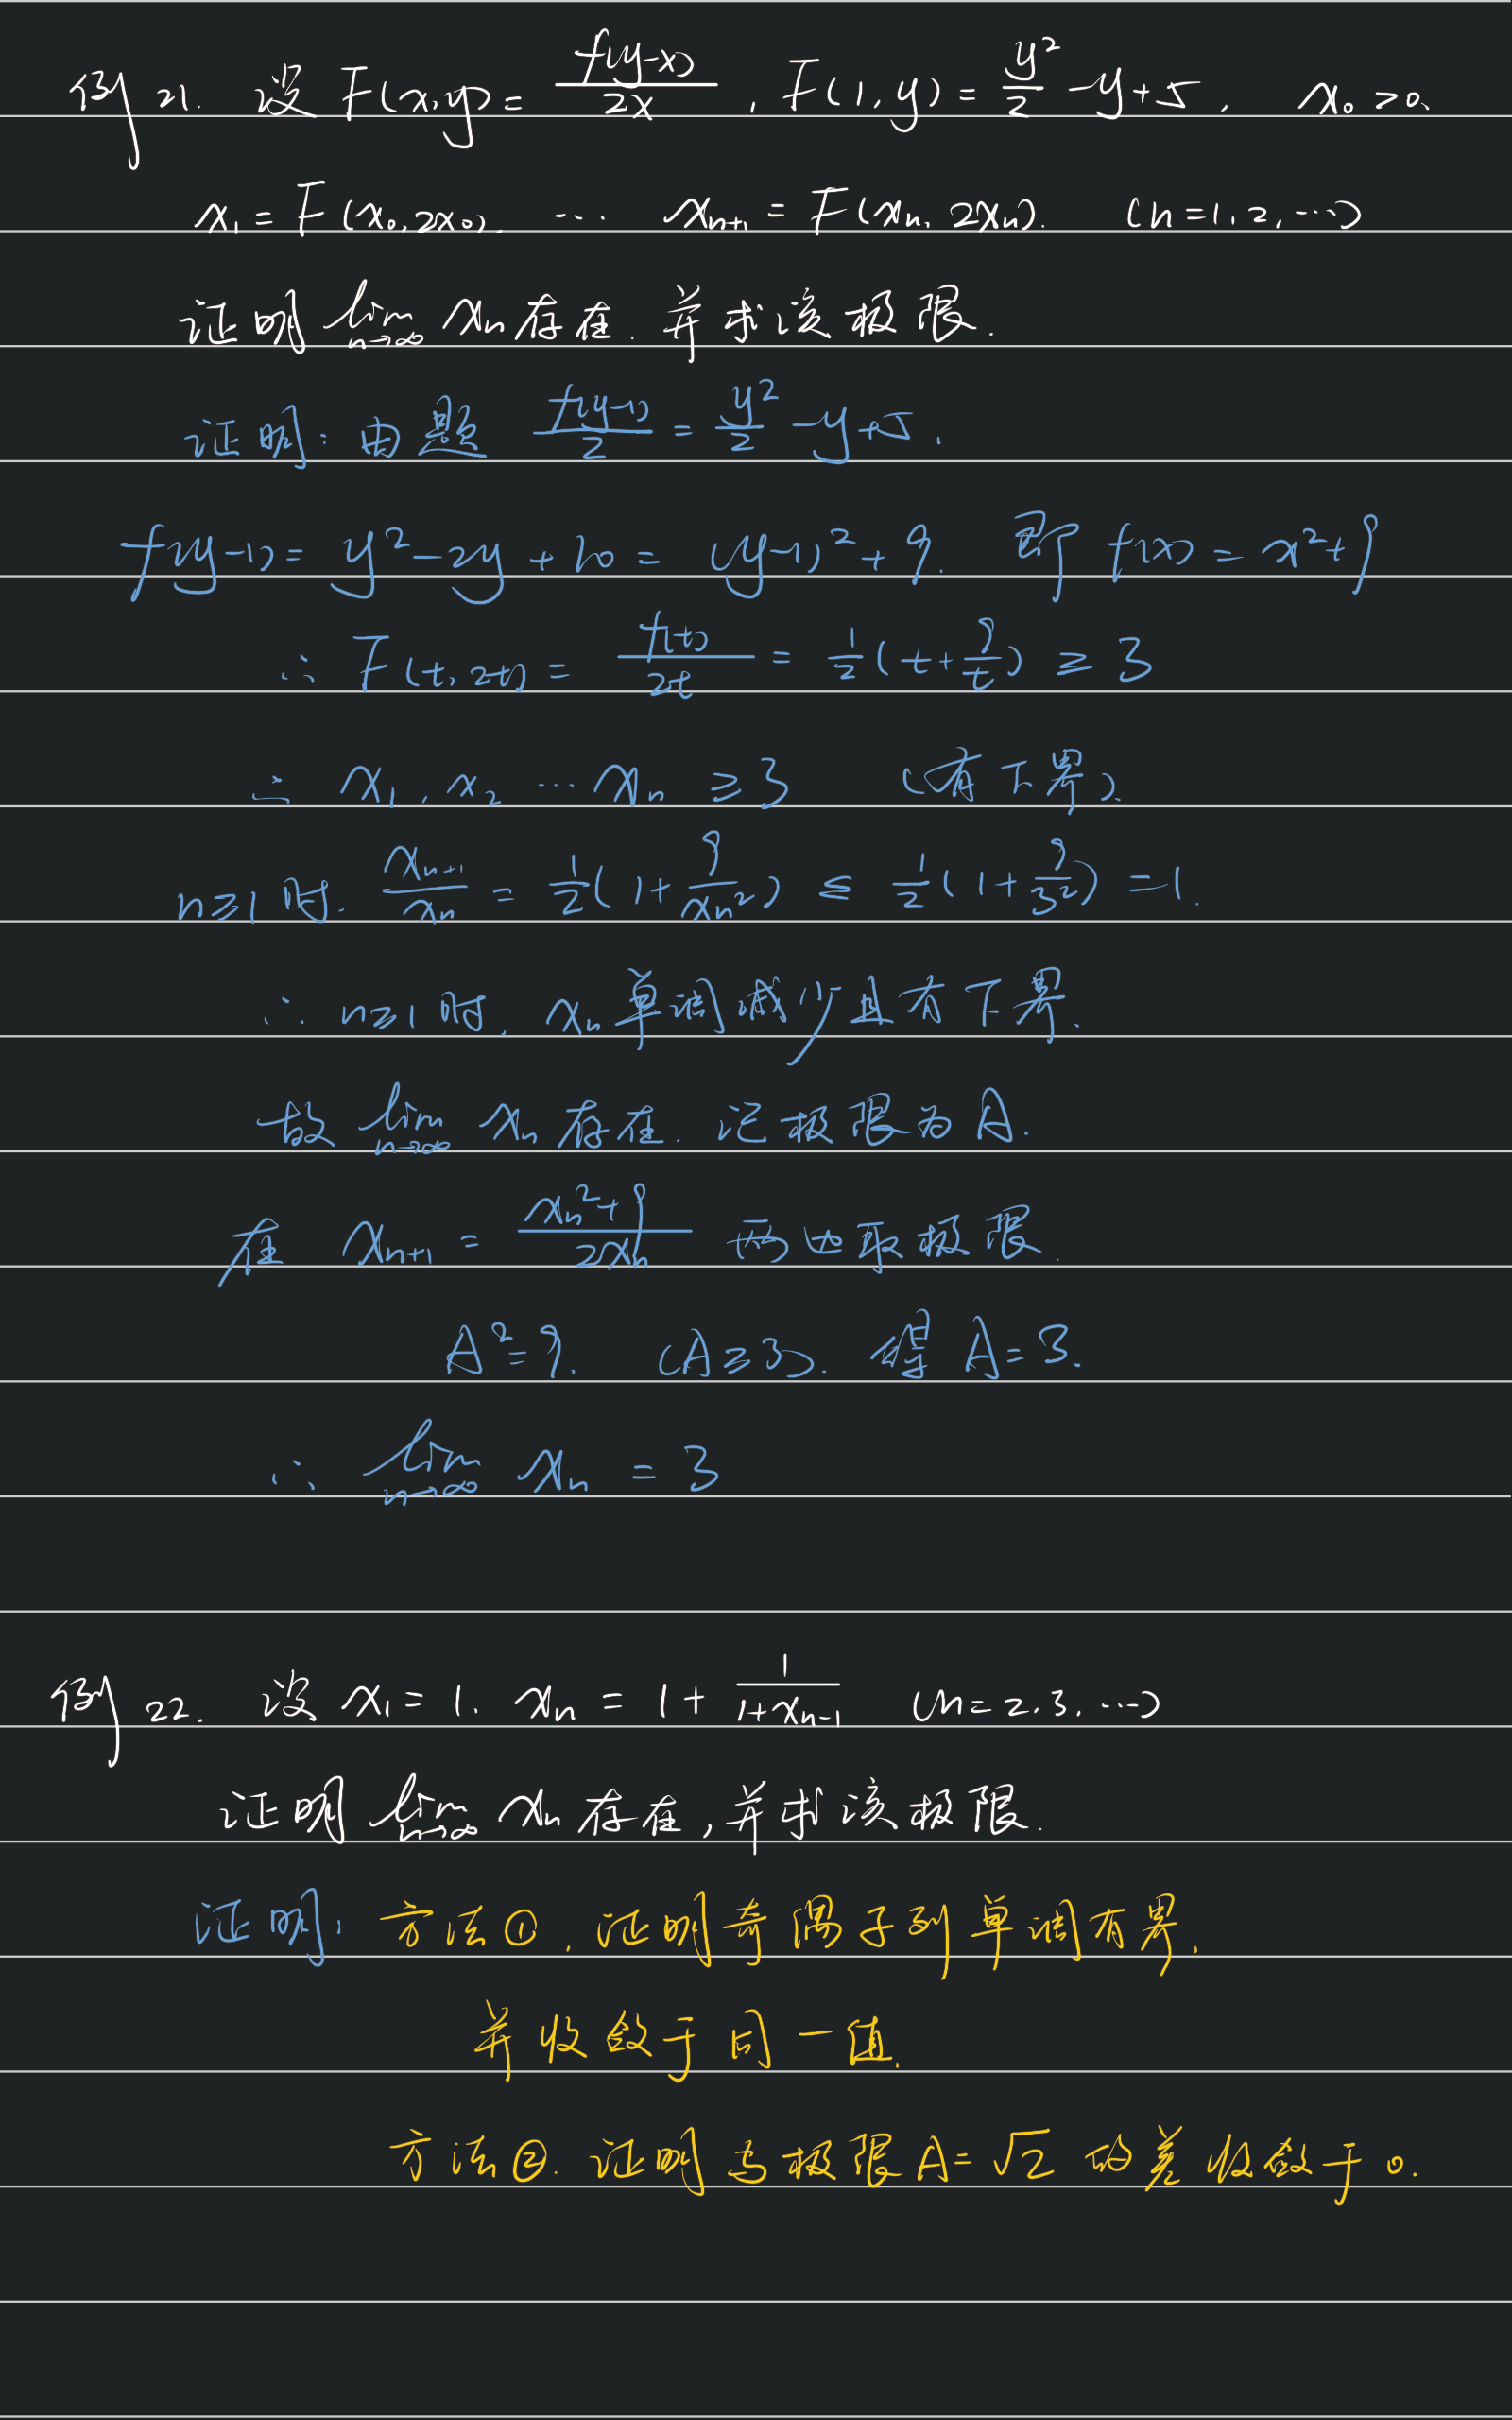 例21. 设 F(x,y) = f(y-x)/2x , F(1,y) = y²/2 - y + 5 , x₀ > 0.
x₁ = F(x₀, 2x₀). … xₙ₊₁ = F(xₙ, 2xₙ). (n=1,2,…)
证明 lim n→∞ xₙ 存在. 并求该极限.
证明: 由题 f(y-1)/2 = y²/2 - y + 5 .
f(y-1) = y² - 2y + 10 = (y-1)² + 9. 即 f(x) = x² + 9
∴ F(t, 2t) = f(t)/2t = 1/2 (t + 9/t) ≥ 3
∴ x₁, x₂ … xₙ ≥ 3 (有下界).
n≥1时. xₙ₊₁/xₙ = 1/2 (1 + 9/xₙ²) ≤ 1/2 (1 + 9/3²) = 1.
∴ n≥1时, xₙ 单调减少且有下界.
故 lim n→∞ xₙ 存在. 记极限为 A.
在 xₙ₊₁ = xₙ²+9/2xₙ 两边取极限.
A² = 9. (A≥3). 得 A = 3.
∴ lim n→∞ xₙ = 3
例22. 设 x₁ = 1. xₙ = 1 + 1/1+xₙ₋₁ (n=2,3,…)
证明 lim n→∞ xₙ 存在,并求该极限.
证明: 方法①. 证明奇偶子列单调有界.
并收敛于同一值.
方法②. 证明与极限 A=√2 的差收敛于 0.